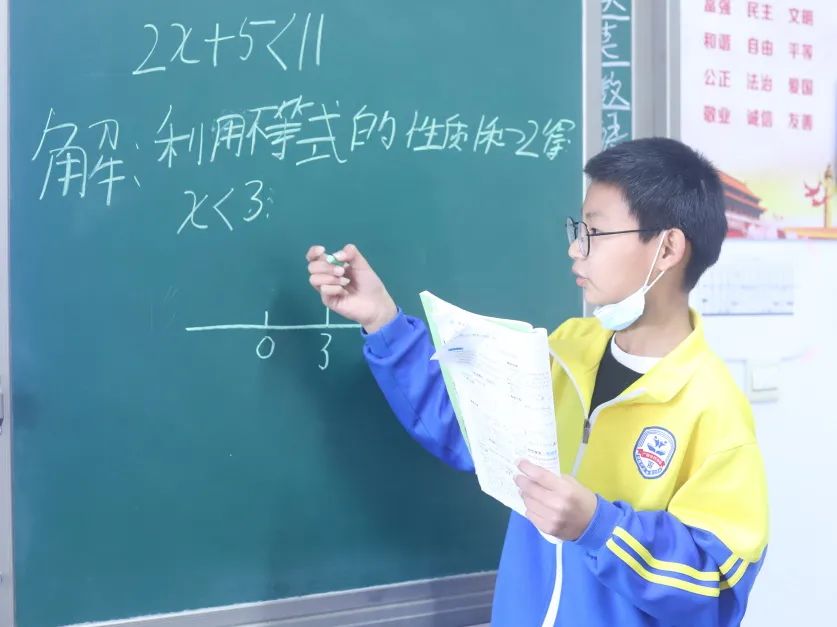 2x+5<11
解:利用不等式的性质1和2得
x<3.
0 3
数
富强 民主 文明
和谐 自由 平等
公正 法治 爱国
敬业 诚信 友善